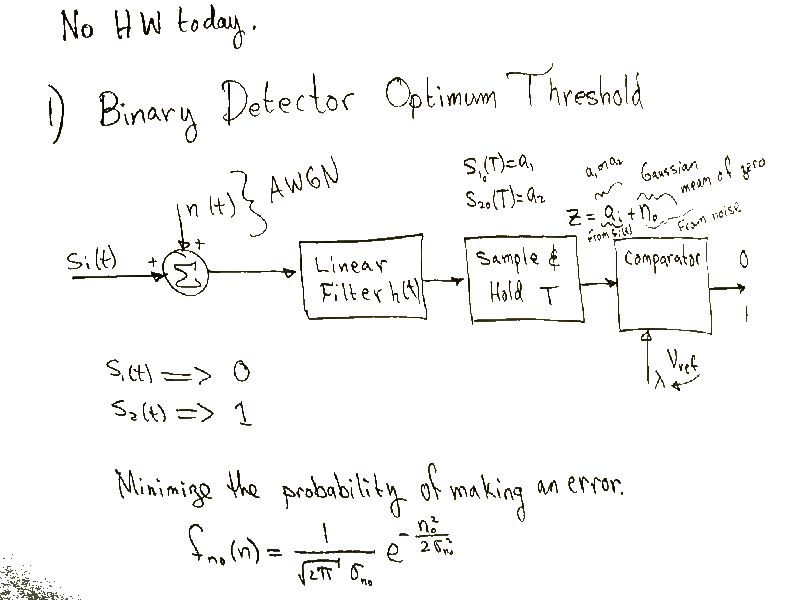 No HW today.
1) Binary Detector Optimum Threshold
n(t) } AWGN
S₁₀(T)=a₁
S₂₀(T)=a₂
a₁ or a₂
Gaussian
mean of zero
Z = aᵢ + n₀
from sᵢ(t)
From noise
Sᵢ(t)
+
+
Σ
Linear
Filter h(t)
Sample &
Hold T
Comparator
0
1
λ
Vref
S₁(t) => 0
S₂(t) => 1
Minimize the probability of making an error.
fₙ₀(n) = 1/(√2π σₙ₀) e^(-n₀²/2σₙ₀²)